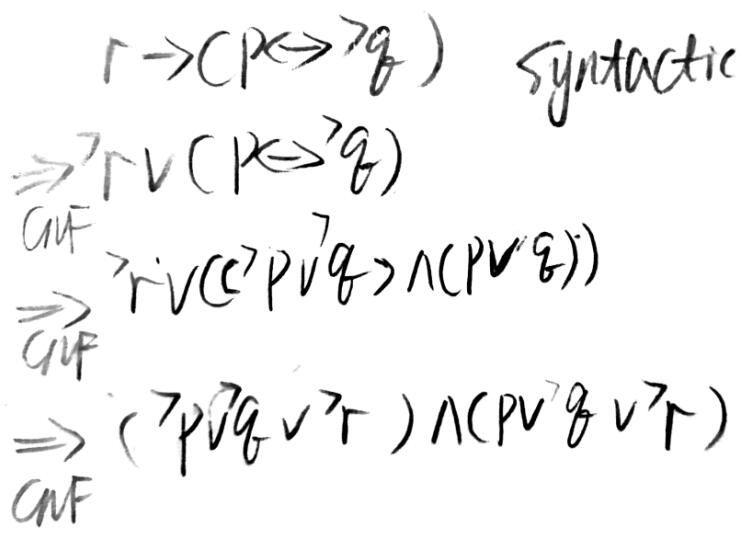 r→(p↔¬q) Syntactic
⇒CNF ¬r∨(p↔¬q)
⇒CNF ¬r∨((¬p∨¬q)∧(p∨q))
⇒CNF (¬p∨¬q∨¬r)∧(p∨q∨¬r)